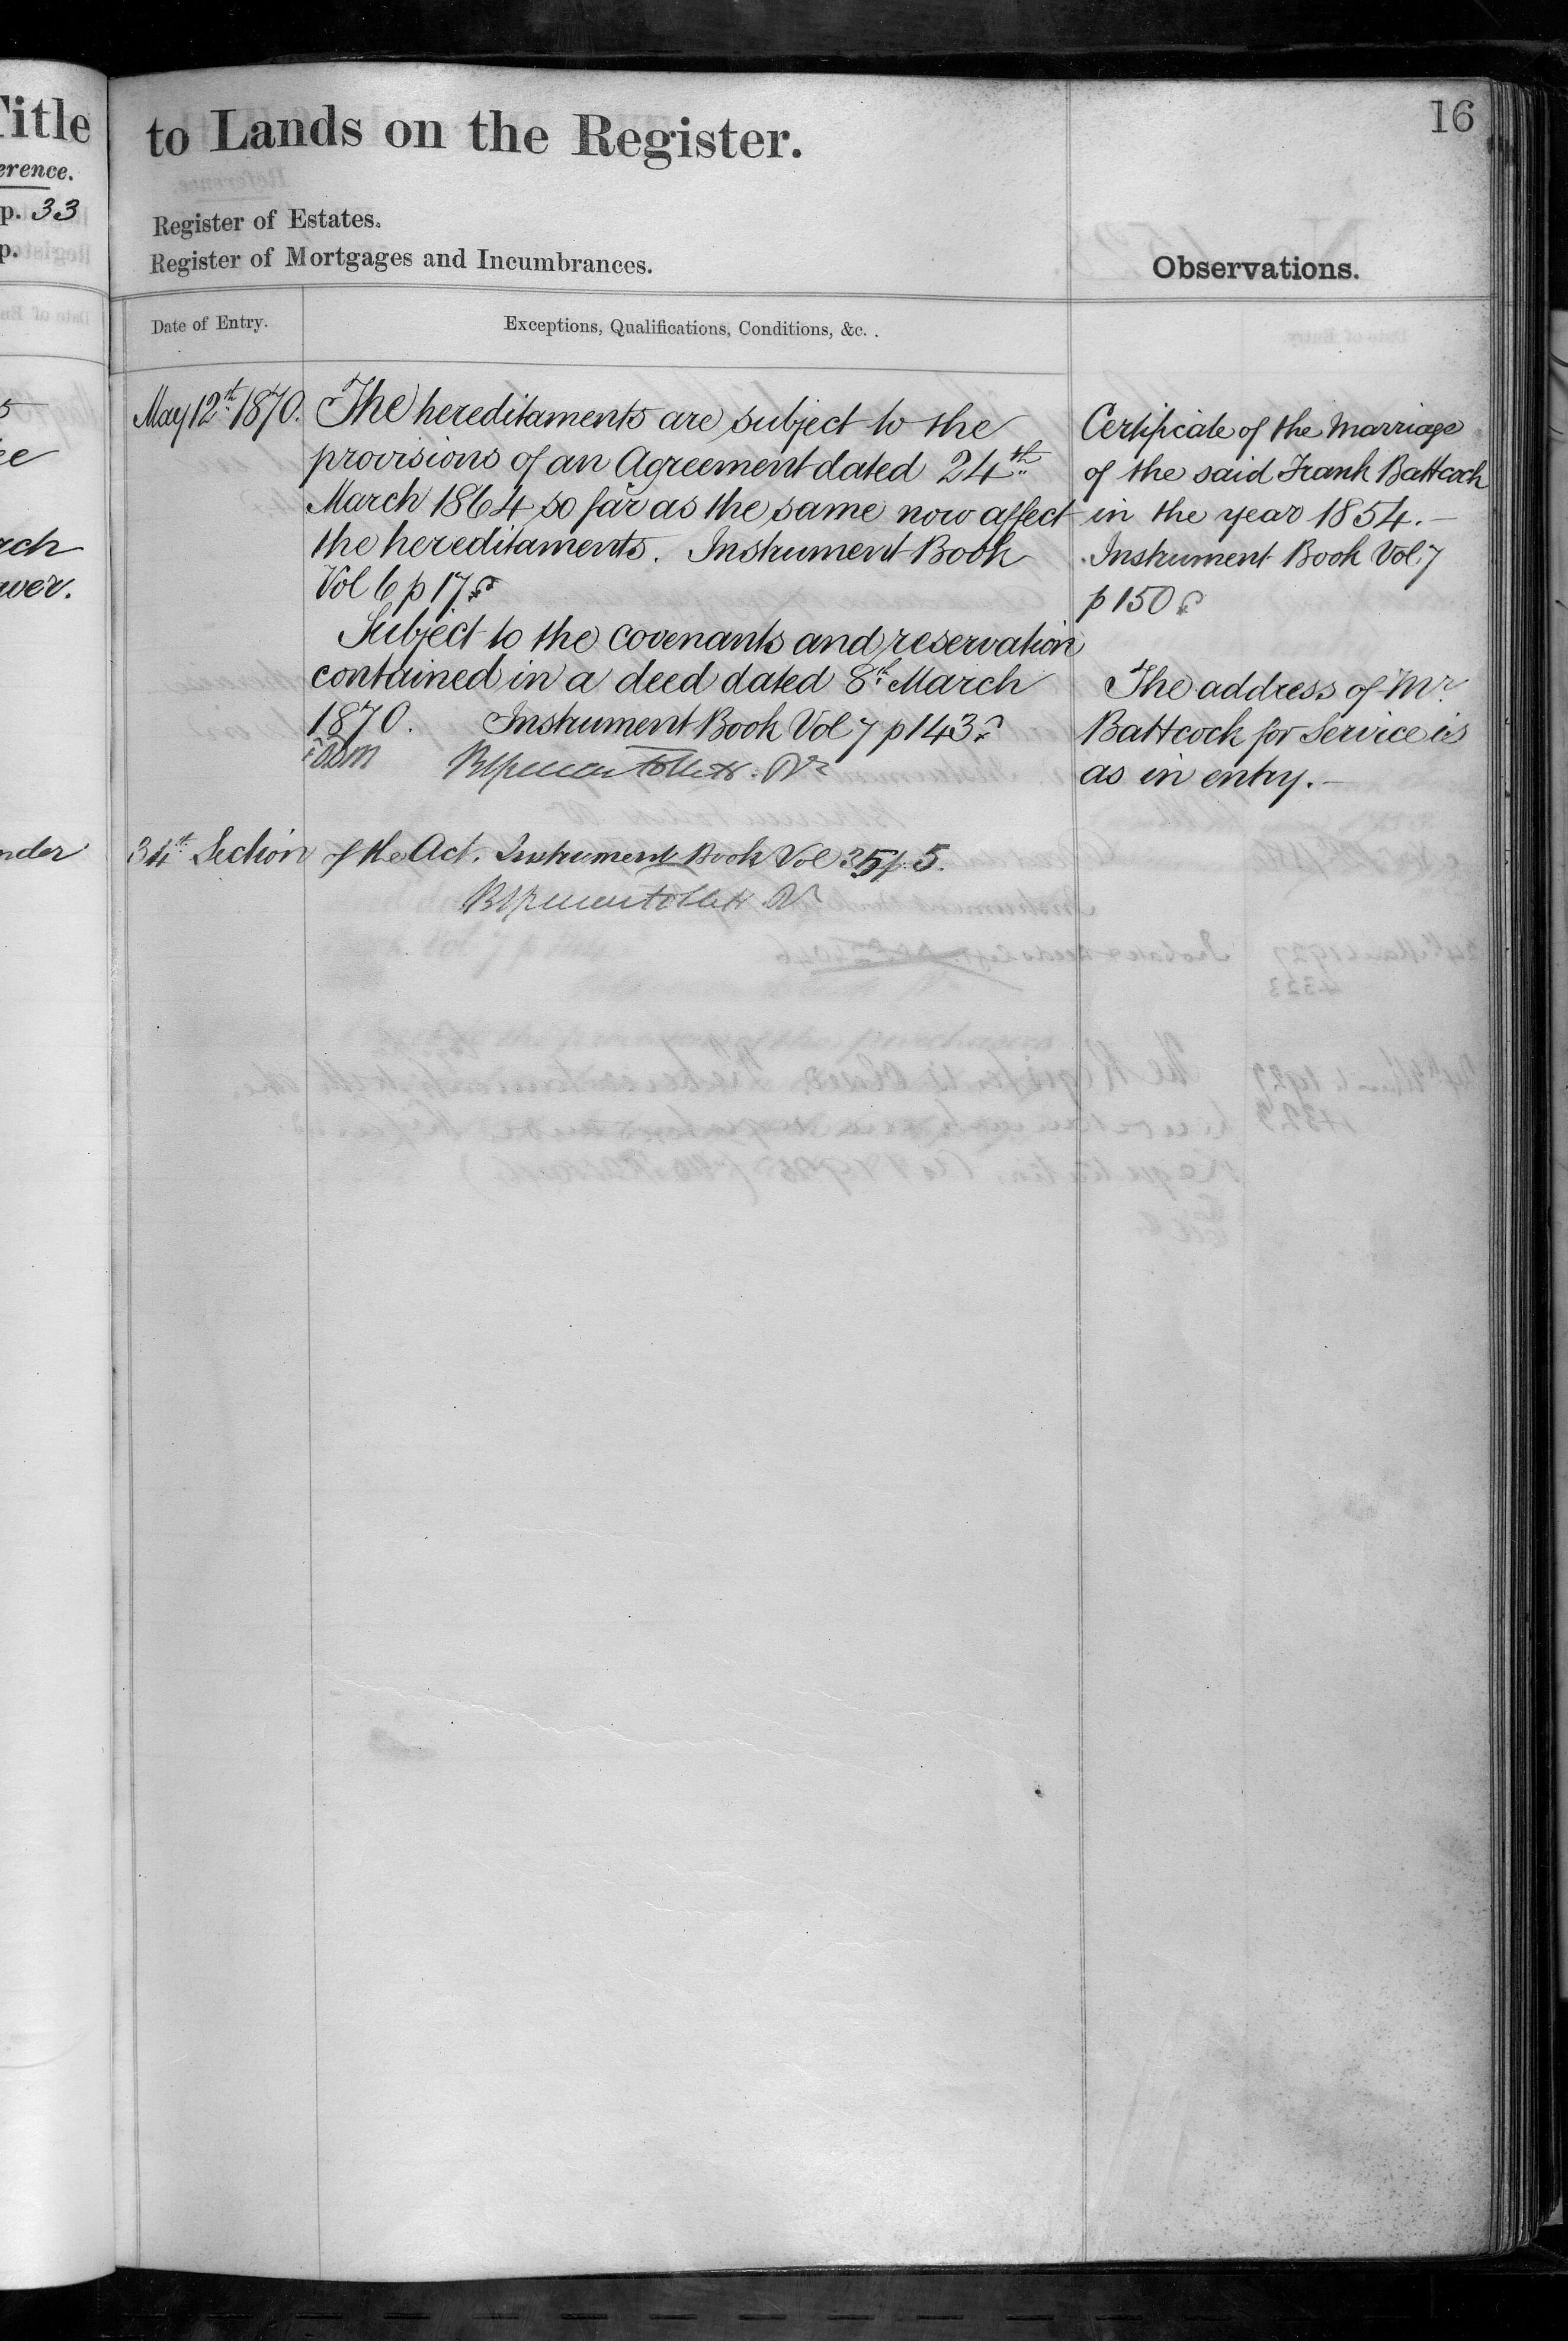 Title
erence.
p. 33
p.
5
ee
rch
wer.
nder
to Lands on the Register.
16
Register of Estates.
Register of Mortgages and Incumbrances.
Observations.
Date of Entry.
Exceptions, Qualifications, Conditions, &c. .
May 12th 1870.
The hereditaments are subject to the
provisions of an Agreement dated 24th
March 1864 so far as the same now affect
the hereditaments. Instrument Book
Vol 6 p 17
Subject to the covenants and reservation
contained in a deed dated 8th March
1870. Instrument Book Vol 7 p 143
34th Section of the Act. Instrument Book Vol 35 p. 5.
Certificate of the Marriage
of the said Frank Battcock
in the year 1854.—
Instrument Book Vol 7
p 150
The address of Mr
Battcock for Service is
as in entry.—